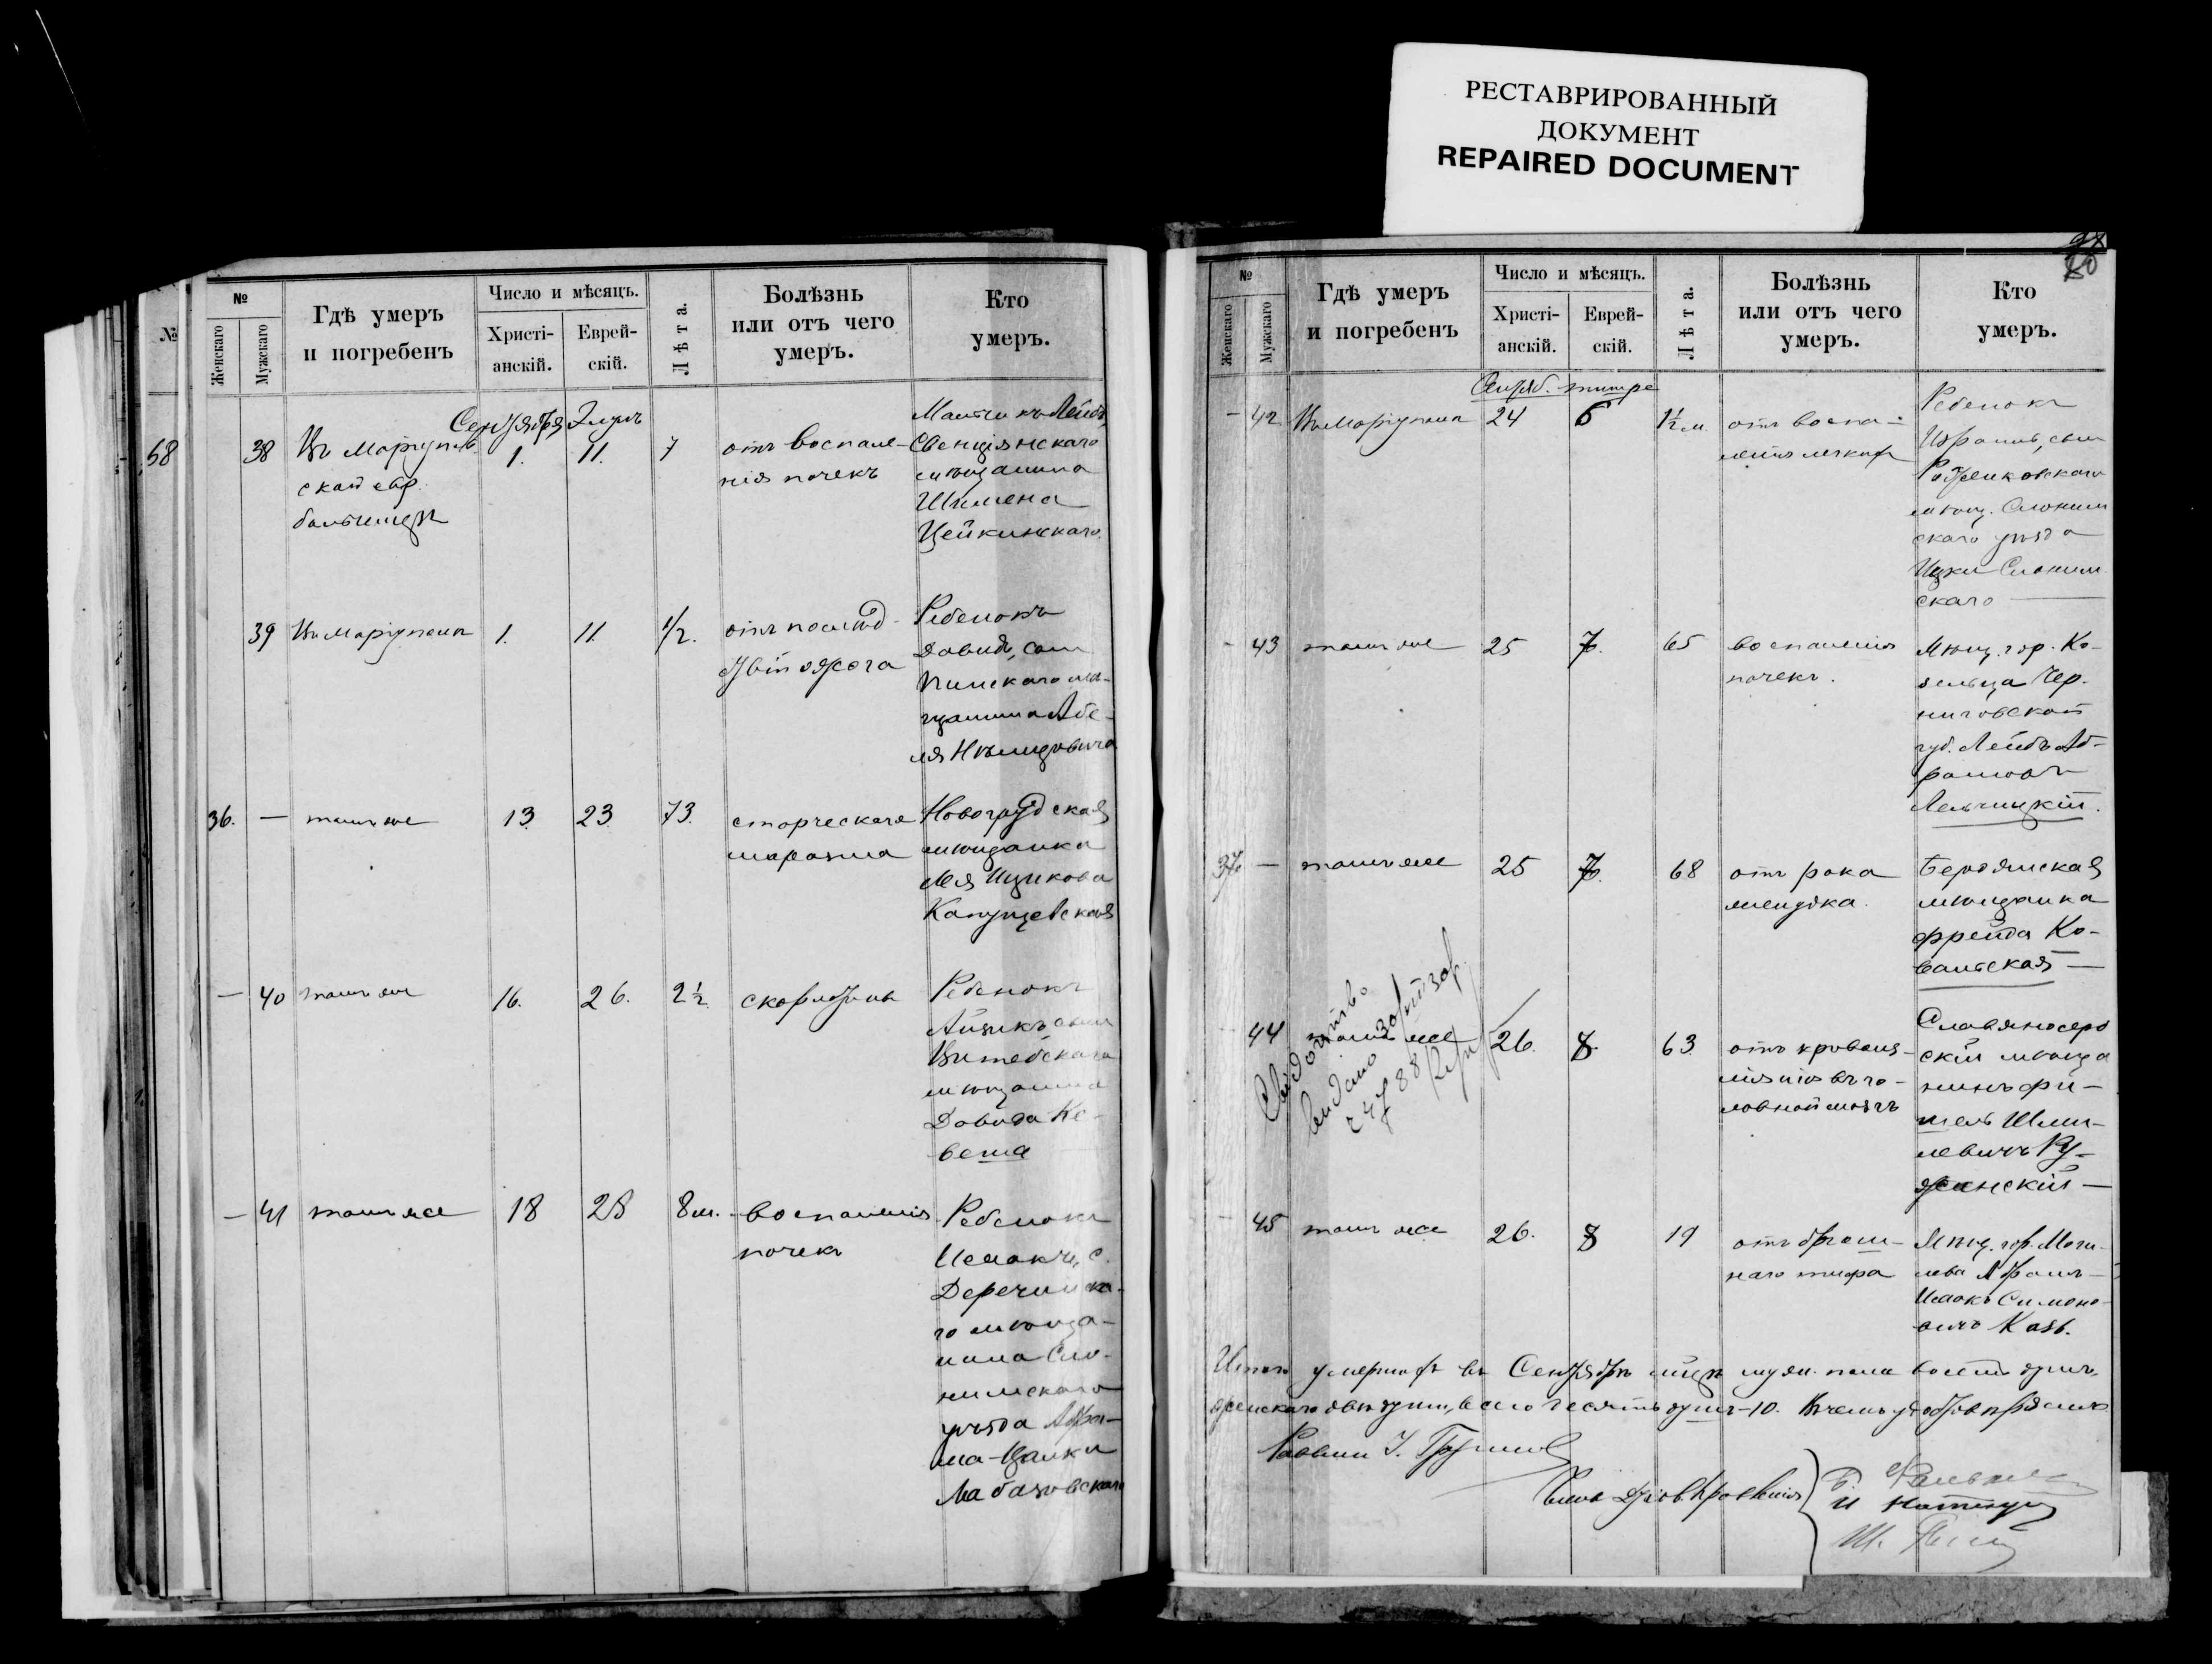 РЕСТАВРИРОВАННЫЙ
ДОКУМЕНТ
REPAIRED DOCUMENT
№
№
Женскаго
Мужскаго
Гдѣ умеръ
и погребенъ
Число и мѣсяцъ.
Христі-
анскій.
Еврей-
скій.
Лѣта.
Болѣзнь
или отъ чего
умеръ.
Кто
умеръ.
58
Сентября Элулъ
38
Въ Маріуполь
ской евр.
больницѣ
1.
11.
7
отъ воспале-
нія почекъ
Мальчикъ Лейбъ,
Свенцянскаго
мѣщанина
Шимена
Цейкинскаго
39
Въ Маріуполѣ
1.
11.
1/2.
отъ послѣд-
Ребенокъ
Давидъ, сынъ
Пинскаго мѣ-
щанина Абе-
ля
36.
—
тамъ же
13
23
73.
старческаго
маразма
Новогрудская
мѣщанка
Лея Ицкова
—
40
тамъ же
16.
26.
2 1/2
скарлатины
Ребенокъ
Айзикъ сынъ
Витебскаго
мѣщанина
Давида Ке-
веша
—
41
тамъ же
18
28
8 м.
воспаленія
почекъ
Ребенокъ
Исаакъ, с.
Деречинска-
го мѣща-
нина Сло-
нимскаго
уѣзда Абра-
ма-Ицки
№
Женскаго
Мужскаго
Гдѣ умеръ
и погребенъ
Число и мѣсяцъ.
Христі-
анскій.
Еврей-
скій.
Лѣта.
Болѣзнь
или отъ чего
умеръ.
Кто
умеръ.
Сентяб. тишре
—
42
Въ Маріуполѣ
24
6
1 1/2 м.
отъ воспа-
ленія легкихъ
Ребенокъ
Израиль, сынъ
мѣщ. Слоним
скаго уѣзда
Ицки Слоним
скаго
43
тамъ же
25
7.
65
воспаленія
почекъ.
Мѣщ. гор. Ко-
зельца Чер-
ниговской
губ. Лейбъ Аб-
рамовъ
Лельчицкій.
37.
—
тамъ же
25
7.
68
отъ рака
желудка.
Бердянская
мѣщанка
Фрейда Ко-
вальская
44
тамъ же
26.
8.
63
отъ кровоиз-
ліянія въ го-
ловной мозгъ
Славяносерб
скій мѣща
нинъ Фи-
шель Шми-
левичъ Ру-
жанскій
45
тамъ же
26.
8
19
отъ брюш-
наго тифа
Мѣщ. гор. Моги-
лева Абрамъ-
Исаакъ Симоно-
вичъ Казъ.
Итого умершихъ въ Сентябрѣ м-цѣ муж. пола восемь душъ,
женскаго двѣ души, всего десять душъ-10. Въ чемъ удостовѣряемъ
Раввинъ